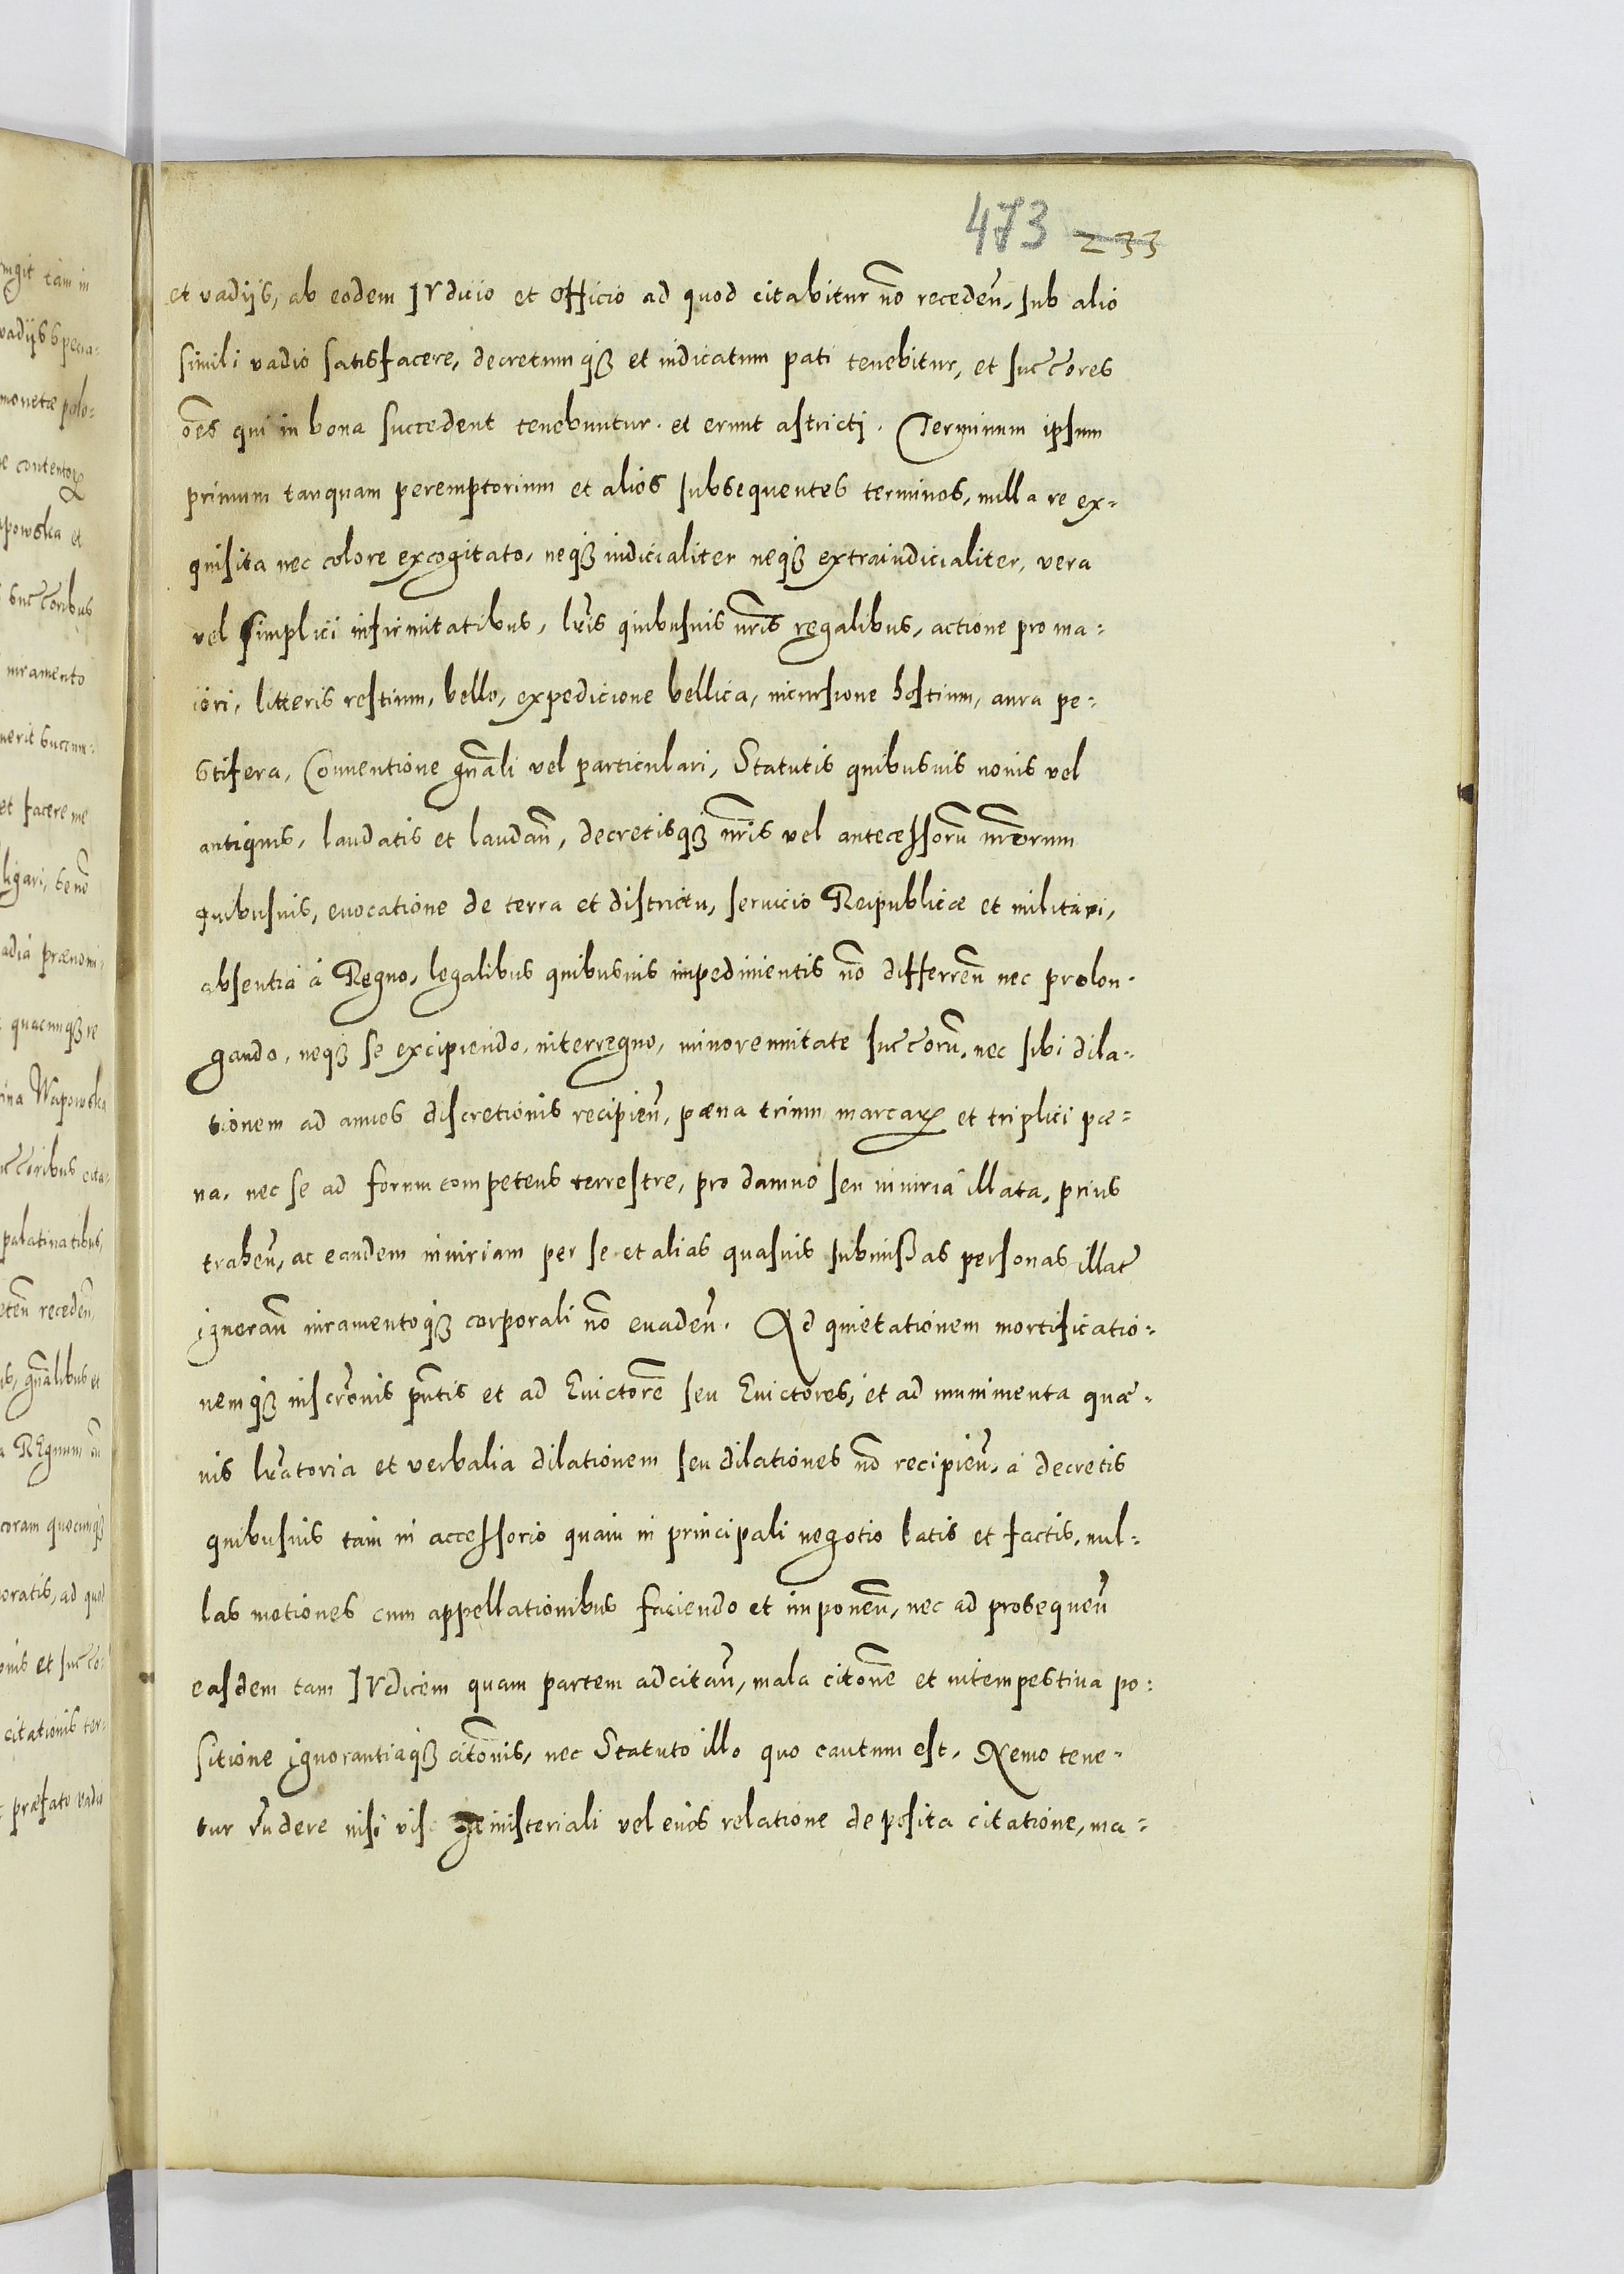 473 233
et vadijs, ab eodem IVdicio et officio ad quod citabitur nō recedeñ, sub alio
simili vadio satisfacere, decretumqȝ et iudicatum pati tenebitur, et succ̃ores
oẽs qui in bona succedent tenebuntur. et erunt astricti. Terminum ipsum
primum tanquam peremptorium et alios subsequentes terminos, nulla re ex-
quisita nec colore excogitato, neqȝ iudicialiter neqȝ extraiudicialiter, vera
vel simplici infirmitatibus, lr̃is quibusuis nr̃is regalibus, actione pro ma-
iori, litteris restium, bello, expedicione bellica, incursione hostium, aura pe-
stifera, Conuentione gñali vel particulari, Statutis quibusuis nouis vel
antiquis, laudatis et laudañ, decretisqȝ nr̃is vel antecessorũ nr̃orum
quibusuis, euocatione de terra et districtu, seruicio Reipublicæ et militari,
absentia á Regno, legalibus quibusuis impedimentis nō differreñ nec prolon-
gando, neqȝ se excipiendo, interregno, minorennitate succ̃orũ, nec sibi dila-
tionem ad annos discretionis recipieñ, pæna trium marcaꝝ et triplici pæ-
na, nec se ad forum competens terrestre, pro damno seu iniuria illata, prius
traheñ, ac eandem iniuriam per se et alias quasuis submißas personas illat̃
ignorañ iuramentoqȝ corporali nō euadeñ. Ad quietationem mortificatio-
nemqȝ inscr̃onis p̃ntis et ad Euictorẽ seu Euictores, et ad munimenta quæ-
uis lr̃atoria et verbalia dilationem seu dilationes nō recipieñ, á decretis
quibusuis tam in accessorio quam in principali negotio latis et factis, nul-
las motiones cum appellationibus faciendo et imponeñ, nec ad prosequeñ
easdem tam IVdicem quam partem adcitañ, mala citõne et intempestiua po-
sitione ignorantiaqȝ citõnis, nec Statuto illo quo cautum est, Nemo tene-
tur r̃ndere nisi viso ministeriali vel eius relatione deposita citatione, ma-